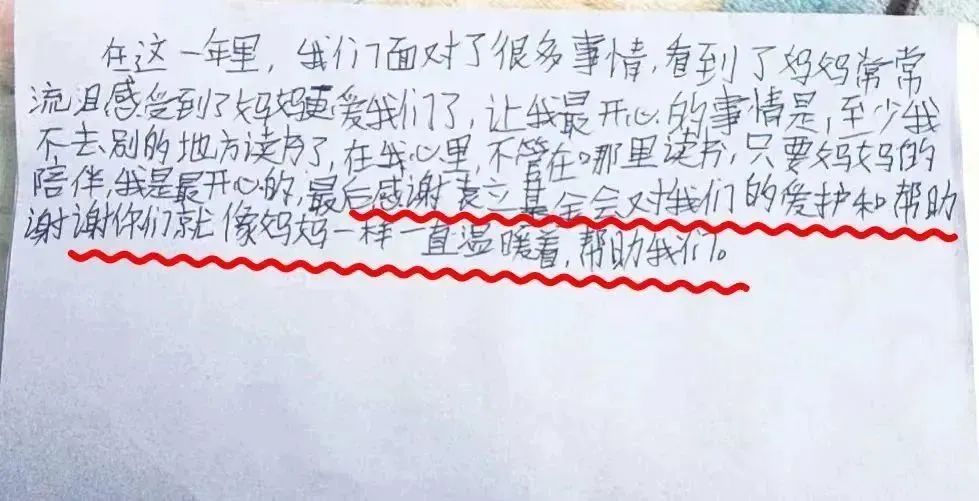 在这一年里，我们面对了很多事情，看到了妈妈常常
流泪感受到了妈妈更爱我们了，让我最开心的事情是，至少我
不去别的地方读书了，在我心里，不管在哪里读书，只要妈妈的
陪伴，我是最开心的，最后感谢袁立基金会对我们的爱护和帮助
谢谢你们就像妈妈一样一直温暖着，帮助我们。